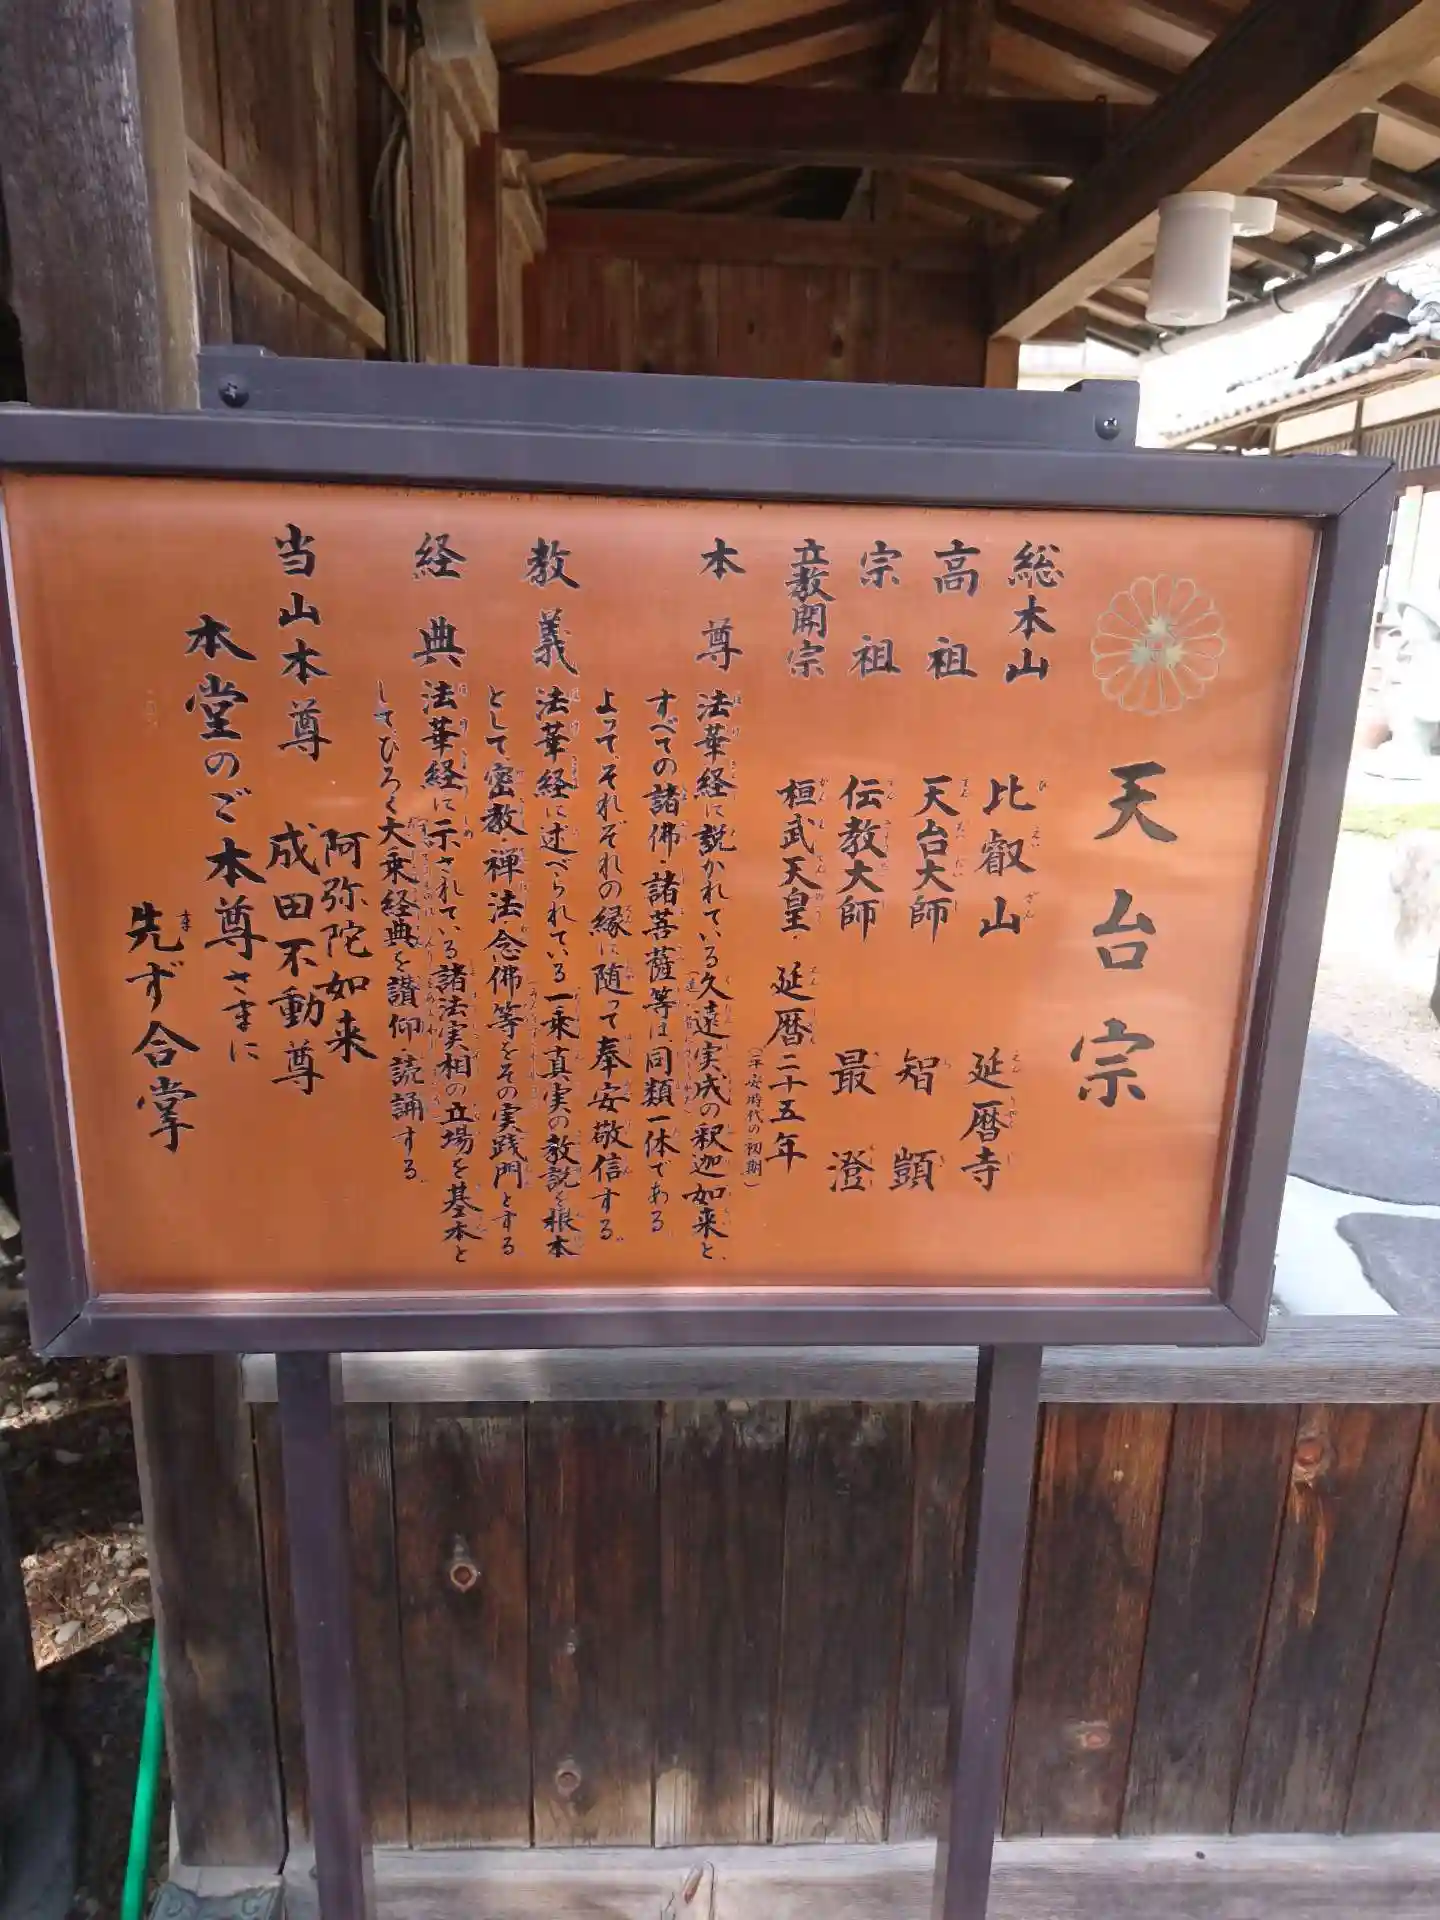 天台宗
総本山 比叡山 延暦寺
高祖 天台大師 智顗
宗祖 伝教大師 最澄
立教開宗 桓武天皇・延暦二十五年
(平安時代の初期)
本尊 法華経に説かれている久遠実成の釈迦如来と、
すべての諸佛・諸菩薩等は同類一体である
よって、それぞれの縁に随って奉安敬信する。
教義 法華経に述べられている一乗真実の教説を根本
として、密教・禅法・念佛等をその実践門とする
経典 法華経に示されている諸法実相の立場を基本と
して、ひろく大乗経典を讃仰・読誦する。
当山本尊 阿弥陀如来
成田不動尊
本堂のご本尊さまに
先ず合掌